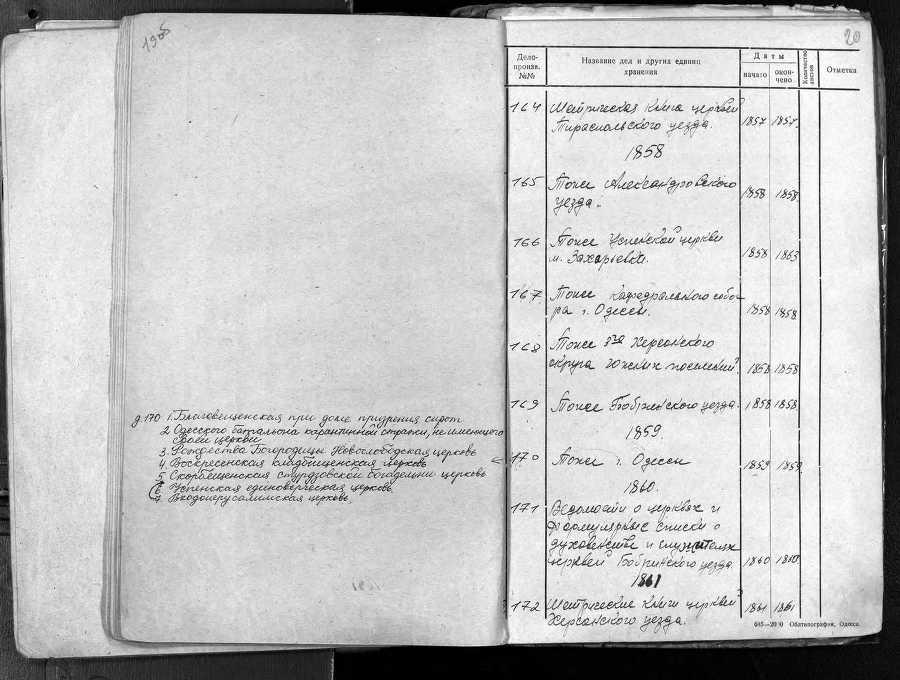 1905
д.170 1. Благовещенская при доме призрения сирот
2. Одесского батальона карантинной стражи, не имеющего
своей церкви
3. Рождества Богородицы Новослободская церковь
4. Воскресенская кладбищенская церковь
5. Скорбященская стурдзовской богадельни церковь
6. Успенская единоверческая церковь
7. Входоиерусалимская церковь
20
Дело-произв. №№ Название дел и других единиц хранения Даты начато окон-чено Количество листов Отметка
164 Метрическая книга церквей 1857 1857
Тираспольского уезда.
1858
165 Тоже Александровского 1858 1858
уезда.
166 Тоже Успенской церкви 1858 1863
м. Захарьевки.
167 Тоже Кафедрального собо- 1858 1858
ра г. Одессы.
168 Тоже 3го Херсонского
округа южных поселений. 1858 1858
169 Тоже Бобринского уезда. 1858 1858
1859.
170 Тоже г. Одессы 1859 1859
1860.
171 Ведомости о церквях и
формулярные списки о
духовенстве и служителях
церквей Бобринского уезда 1860 1860
1861
172 Метрические книги церквей 1861 1861
Херсонского уезда.
645—20 0 Обатилография, Одесса.